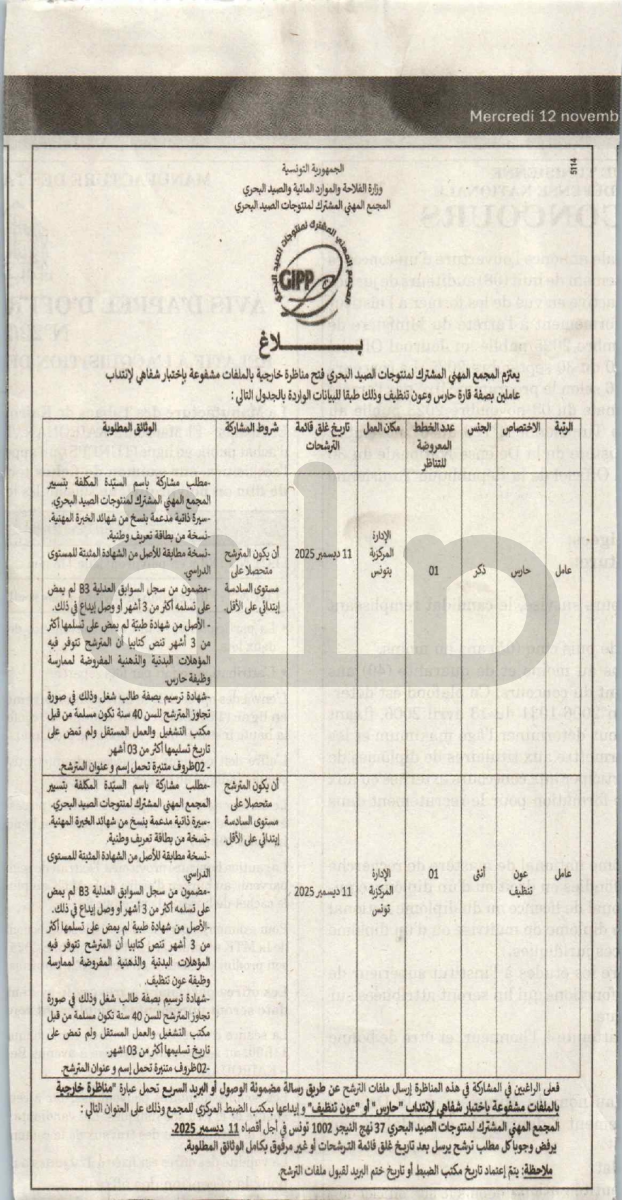 Mercredi 12 novemb
5114
الجمهورية التونسية
وزارة الفلاحة والموارد المائية والصيد البحري
المجمع المهني المشترك لمنتوجات الصيد البحري
GIPP
بـــلاغ
يعتزم المجمع المهني المشترك لمنتوجات الصيد البحري فتح مناظرة خارجية بالملفات مشفوعة بإختبار شفاهي لإنتداب
عاملين بصفة قارة حارس وعون تنظيف وذلك طبقا للبيانات الواردة بالجدول التالي :
الرتبة
الاختصاص
الجنس
عدد الخطط
المعروضة
للتناظر
مكان العمل
تاريخ غلق قائمة
الترشحات
شروط المشاركة
الوثائق المطلوبة
عامل
حارس
ذكر
01
الإدارة
المركزية
بتونس
11 ديسمبر 2025
أن يكون المترشح
متحصلا على
مستوى السادسة
إبتدائي على الأقل.
-مطلب مشاركة باسم السيّدة المكلفة بتسيير
المجمع المهني المشترك لمنتوجات الصيد البحري.
-سيرة ذاتية مدعمة بنسخ من شهائد الخبرة المهنية.
-نسخة من بطاقة تعريف وطنية.
-نسخة مطابقة للأصل من الشهادة المثبتة للمستوى
الدراسي.
-مضمون من سجل السوابق العدلية B3 لم يمض
على تسلمه أكثر من 3 أشهر أو وصل إيداع في ذلك.
- الأصل من شهادة طبيّة لم يمض على تسلمها أكثر
من 3 أشهر تنص كتابيا أن المترشح تتوفر فيه
المؤهلات البدنية والذهنية المفروضة لممارسة
وظيفة حارس.
-شهادة ترسيم بصفة طالب شغل وذلك في صورة
تجاوز المترشح للسن 40 سنة تكون مسلمة من قبل
مكتب التشغيل والعمل المستقل ولم تمض على
تاريخ تسليمها أكثر من 03 أشهر
- 02ظروف متنبرة تحمل إسم و عنوان المترشح.
عامل
عون
تنظيف
أنثى
01
الإدارة
المركزية
تونس
11 ديسمبر 2025
أن يكون المترشح
متحصلا على
مستوى السادسة
إبتدائي على الأقل.
-مطلب مشاركة باسم السيّدة المكلفة بتسيير
المجمع المهني المشترك لمنتوجات الصيد البحري.
-سيرة ذاتية مدعمة بنسخ من شهائد الخبرة المهنية.
-نسخة من بطاقة تعريف وطنية.
-نسخة مطابقة للأصل من الشهادة المثبتة للمستوى
الدراسي.
-مضمون من سجل السوابق العدلية B3 لم يمض
على تسلمه أكثر من 3 أشهر أو وصل إيداع في ذلك.
-الأصل من شهادة طبية لم يمض على تسلمها أكثر
من 3 أشهر تنص كتابيا أن المترشح تتوفر فيه
المؤهلات البدنية والذهنية المفروضة لممارسة
وظيفة عون تنظيف.
-شهادة ترسيم بصفة طالب شغل وذلك في صورة
تجاوز المترشح للسن 40 سنة تكون مسلمة من قبل
مكتب التشغيل والعمل المستقل ولم تمض على
تاريخ تسليمها أكثر من 03 اشهر.
-02ظروف متنبرة تحمل إسم و عنوان المترشح.
فعلى الراغبين في المشاركة في هذه المناظرة إرسال ملفات الترشح عن طريق رسالة مضمونة الوصول أو البريد السريع تحمل عبارة "مناظرة خارجية
بالملفات مشفوعة بإختبار شفاهي لإنتداب "حارس" أو "عون تنظيف" و إيداعها بمكتب الضبط المركزي للمجمع وذلك على العنوان التالي :
المجمع المهني المشترك لمنتوجات الصيد البحري 37 نهج النيجر 1002 تونس في أجل أقصاه 11 ديسمبر 2025.
يرفض وجوبا كل مطلب ترشح يرسل بعد تاريخ غلق قائمة الترشحات أو غير مرفوق بكامل الوثائق المطلوبة.
ملاحظة: يتم إعتماد تاريخ مكتب الضبط أو تاريخ ختم البريد لقبول ملفات الترشح.